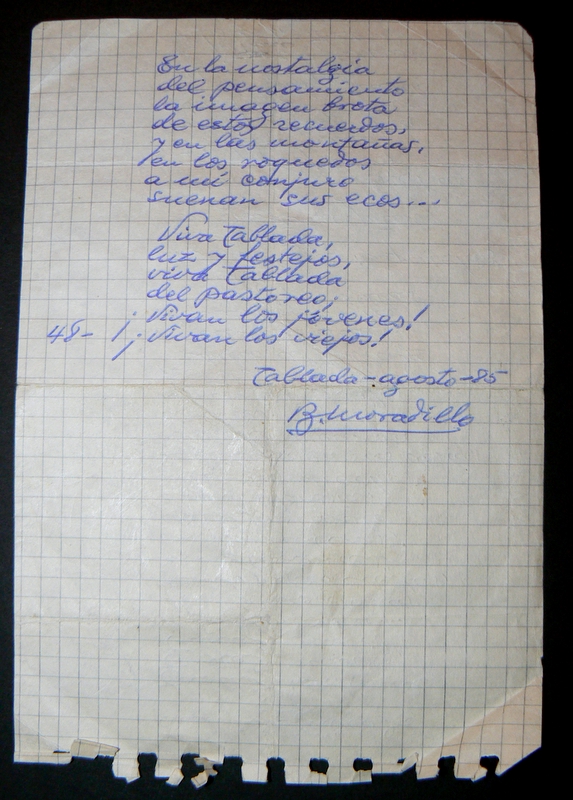 En la nostalgia
del pensamiento
la imagen brota
de estos recuerdos,
y en las montañas,
en los roquedos
a mi conjuro
suenan sus ecos...
Viva Tablada,
luz y festejos,
viva Tablada
del pastoreo;
¡Vivan los jóvenes!
48- ¡¡Vivan los viejos!
Tablada-agosto-85
B. Moradillo